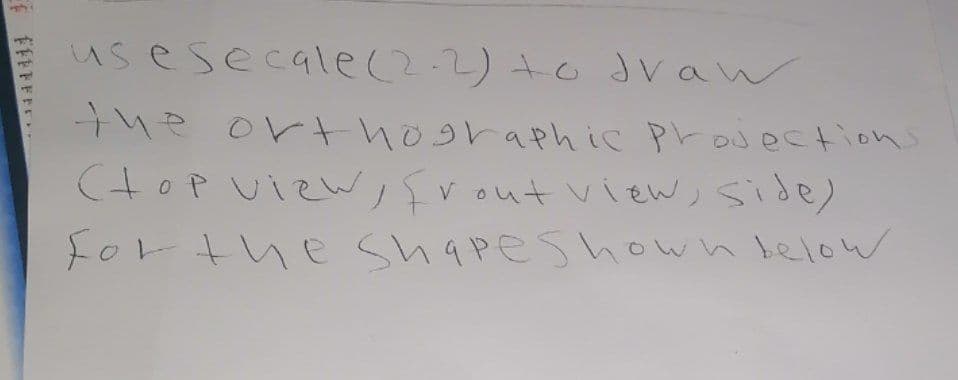 use secale (2.2) to draw
the orthographic Projections
(top view, front view, side)
For the shape shown below